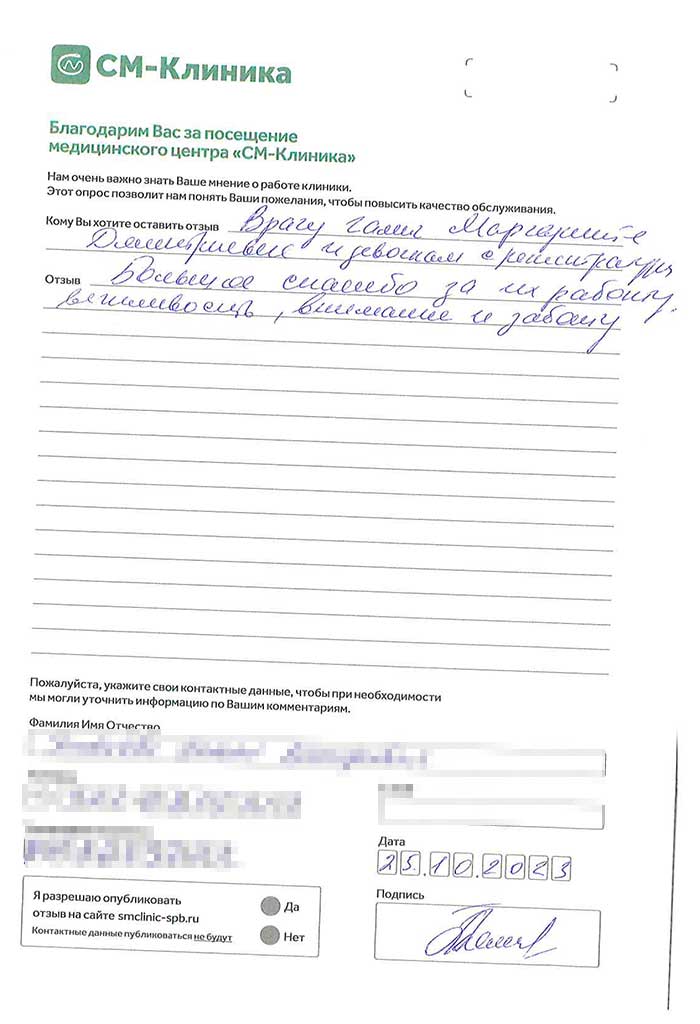 СМ-Клиника
Благодарим Вас за посещение
медицинского центра «СМ-Клиника»
Нам очень важно знать Ваше мнение о работе клиники.
Этот опрос позволит нам понять Ваши пожелания, чтобы повысить качество обслуживания.
Кому Вы хотите оставить отзыв Врачу Маргарите
Дмитриевне и девочкам с регистратуры
Отзыв Большое спасибо за их работу,
вежливость, внимание и заботу
Пожалуйста, укажите свои контактные данные, чтобы при необходимости
мы могли уточнить информацию по Вашим комментариям.
Фамилия Имя Отчество
Дата
25.10.2023
Подпись
Я разрешаю опубликовать
отзыв на сайте smclinic-spb.ru
Контактные данные публиковаться не будут
Да
Нет